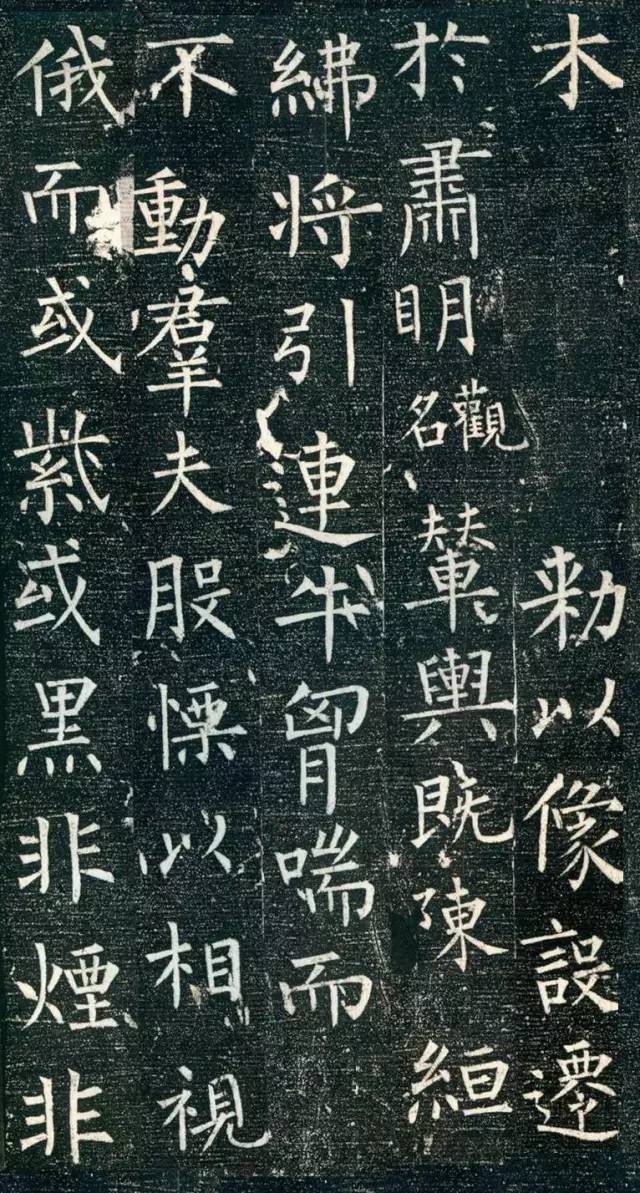 木 勑以像設遷
於肅明觀名輦輿既陳 絙
紼将引連牛胷喘而
不動羣夫股慄以相視
俄而或紫或黑非煙非